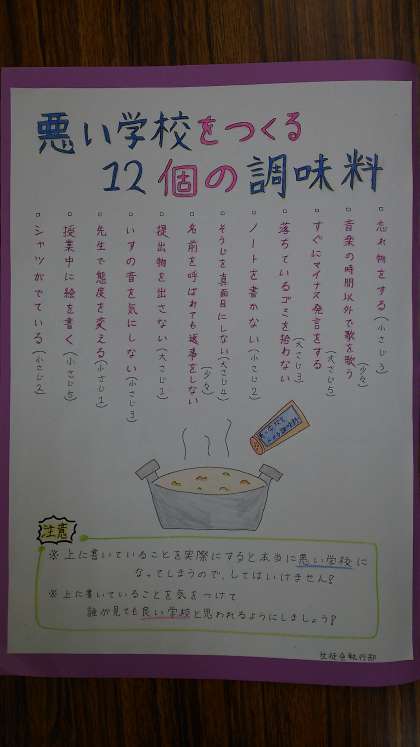 悪い学校をつくる
12個の調味料
○忘れ物をする(小さじ3)
○音楽の時間以外で歌を歌う(少々)
○すぐにマイナス発言をする(大さじ5)
○落ちているゴミを拾わない(大さじ3)
○ノートを書かない(小さじ2)
○そうじを真面目にしない(大さじ4)
○名前を呼ばれても返事をしない(少々)
○提出物を出さない(大さじ1)
○いすの音を気にしない(小さじ3)
○先生で態度を変える(小さじ1)
○授業中に絵を書く(小さじ5)
○シャツがでている(小さじ2)
注意
※上に書いていることを実際にすると本当に悪い学校に
なってしまうので、してはいけません!
※上に書いていることを気をつけて
誰が見ても良い学校と思われるようにしましょう!
生徒会執行部